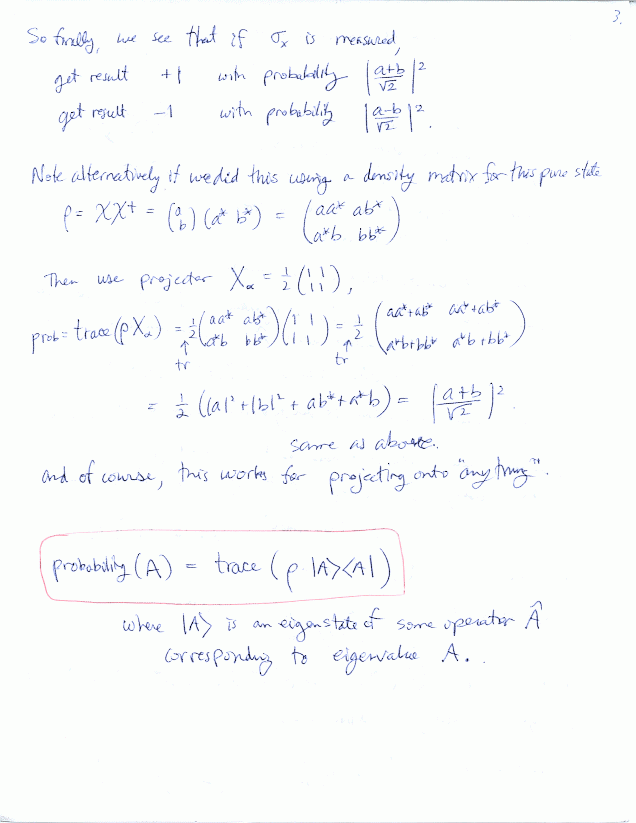 3.
So finally, we see that if σₓ is measured,
get result +1 with probability |a+b/√2|²
get result −1 with probability |a−b/√2|².
Note alternatively if we did this using a density matrix for this pure state
ρ = χχ† = (a b) (a* b*) = (aa* ab* a*b bb*)
Then use projector Xα = 1/2 (1 1 1 1),
prob = trace(ρXα) = 1/2 (aa* ab* a*b bb*) (1 1 1 1) = 1/2 (aa*+ab* aa*+ab* a*b+bb* a*b+bb*)
tr tr
= 1/2 (|a|²+|b|² + ab*+a*b) = |a+b/√2|²
same as above.
and of course, this works for projecting onto "anything".
probability(A) = trace(ρ |A><A|)
where |A> is an eigenstate of some operator Â
corresponding to eigenvalue A.